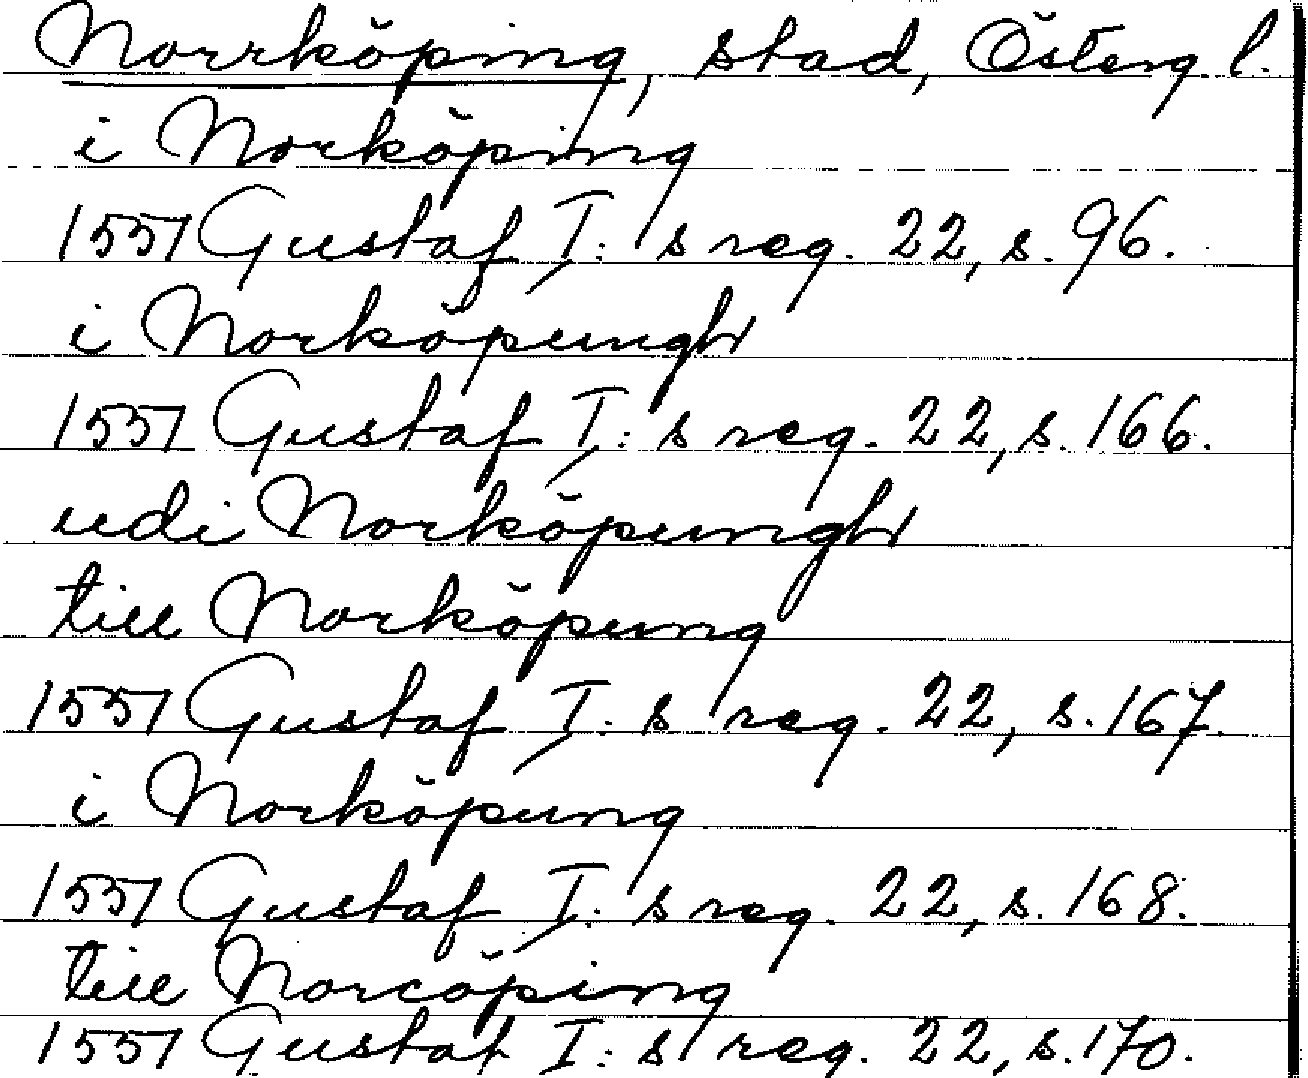 Norrköping, stad, Österg l.
i Norköping
1551 Gustaf I:s reg. 22, s. 96.
i Norköpungh
1551 Gustaf I:s reg. 22, s. 166.
udi Norköpungh
till Norköpung
1551 Gustaf I:s reg. 22, s. 167.
i Norköpung
1551 Gustaf I:s reg. 22, s. 168.
till Norcöping
1551 Gustaf I:s reg. 22, s. 170.